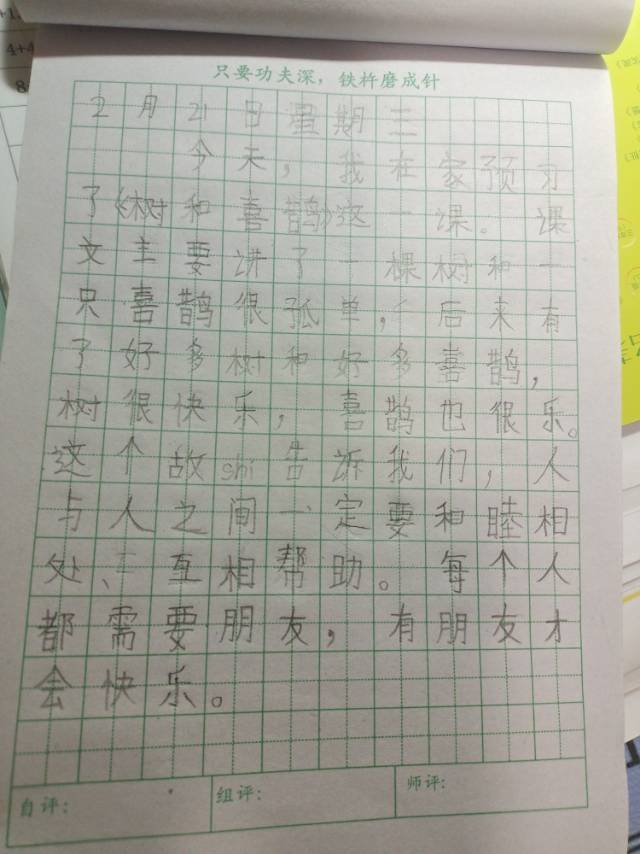 只要功夫深，铁杵磨成针
2月21日星期三
今天，我在家预习
了《树和喜鹊》这一课。课
文主要讲了一棵树和一
只喜鹊很孤单，后来有
了好多树和好多喜鹊，
树很快乐，喜鹊也很乐。
这个故shi告诉我们，人
与人之间一定要和睦相
处、互相帮助。每个人
都需要朋友，有朋友才
会快乐。
自评：
组评：
师评：